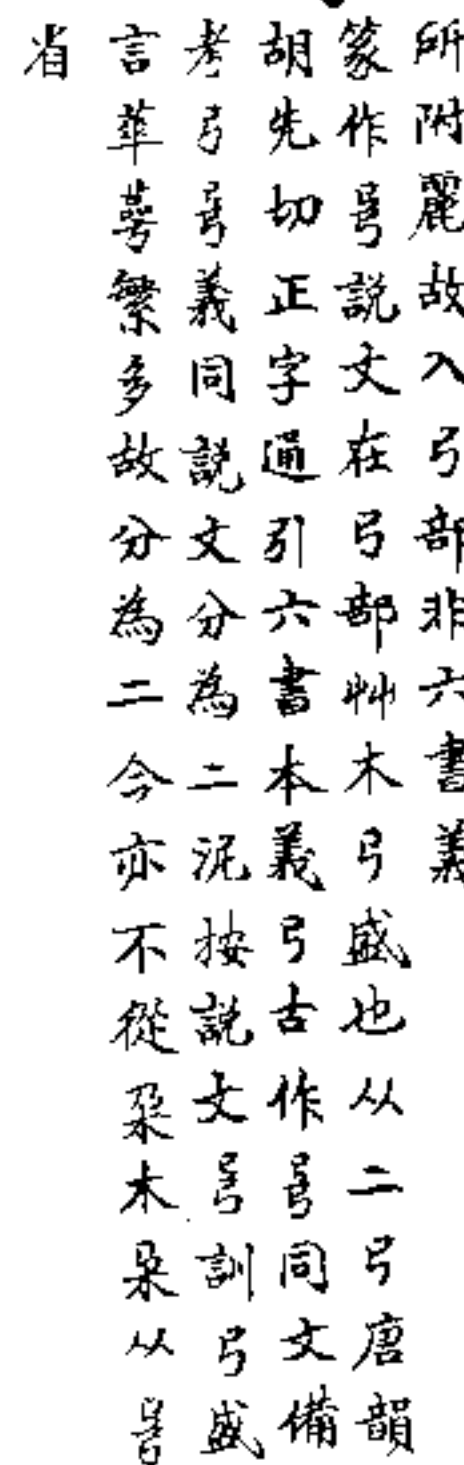 所附麗故入𢎘部非六書義
篆作𢎜說文在𢎘部艸木𢎘盛也从二𢎘唐韻
胡先切正字通引六書本義𢎘古作𢎜同文備
考𢎘𢎜義同說文分為二泥按說文𢎜訓𢎘盛
言華萼繁多故分為二今亦不從朶木朶从𢎜
省